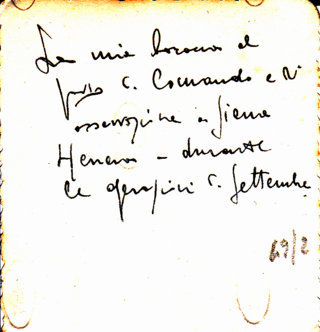 La mia baracca al
posto C. Comando e di
osservazione a Sierra
Henera - durante
le operazioni C. Settembre
69/2